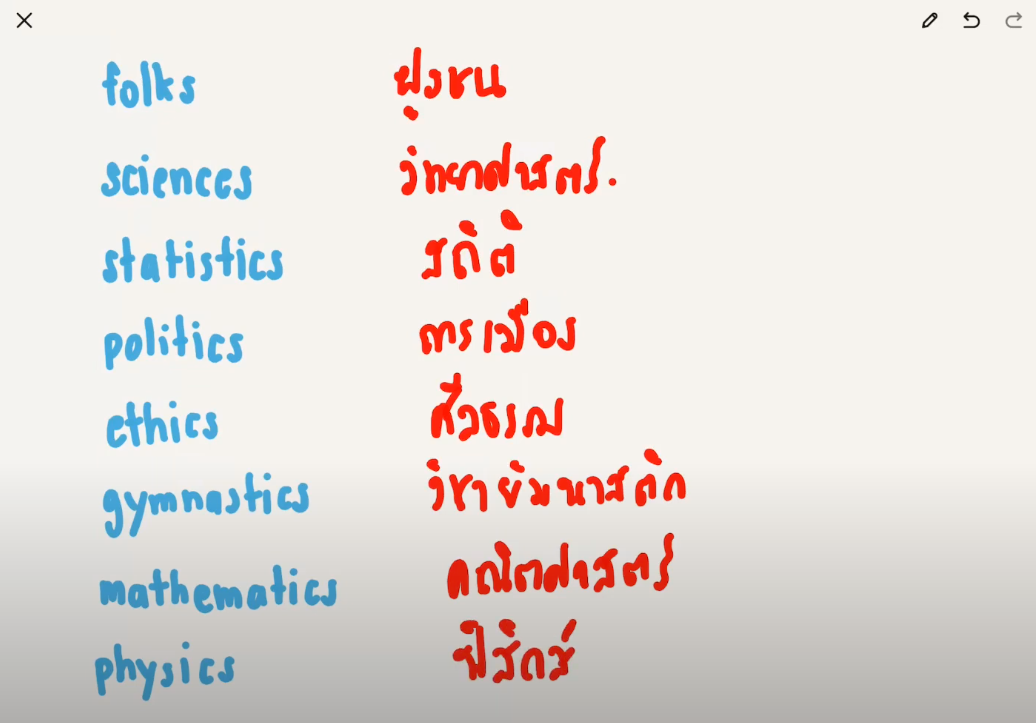 folks ฝูงชน
sciences วิทยาศาสตร์.
statistics สถิติ
politics การเมือง
ethics ศีวธรรม
gymnastics วิชายิมนาสติก
mathematics คณิตศาสตร์
physics ฟิสิกส์